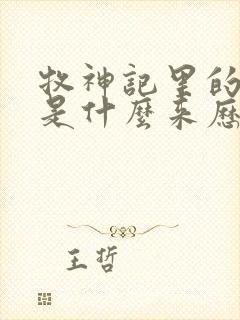 牧神記里的
是什麼来歷
王哲